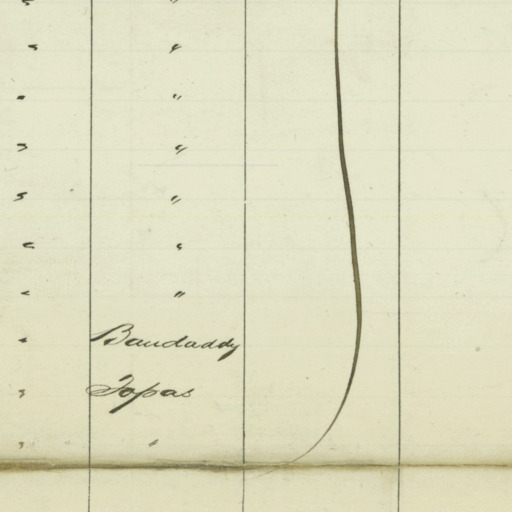 " "
" "
" "
" "
" "
" "
" "
" Baudaddy
" Topas
" "